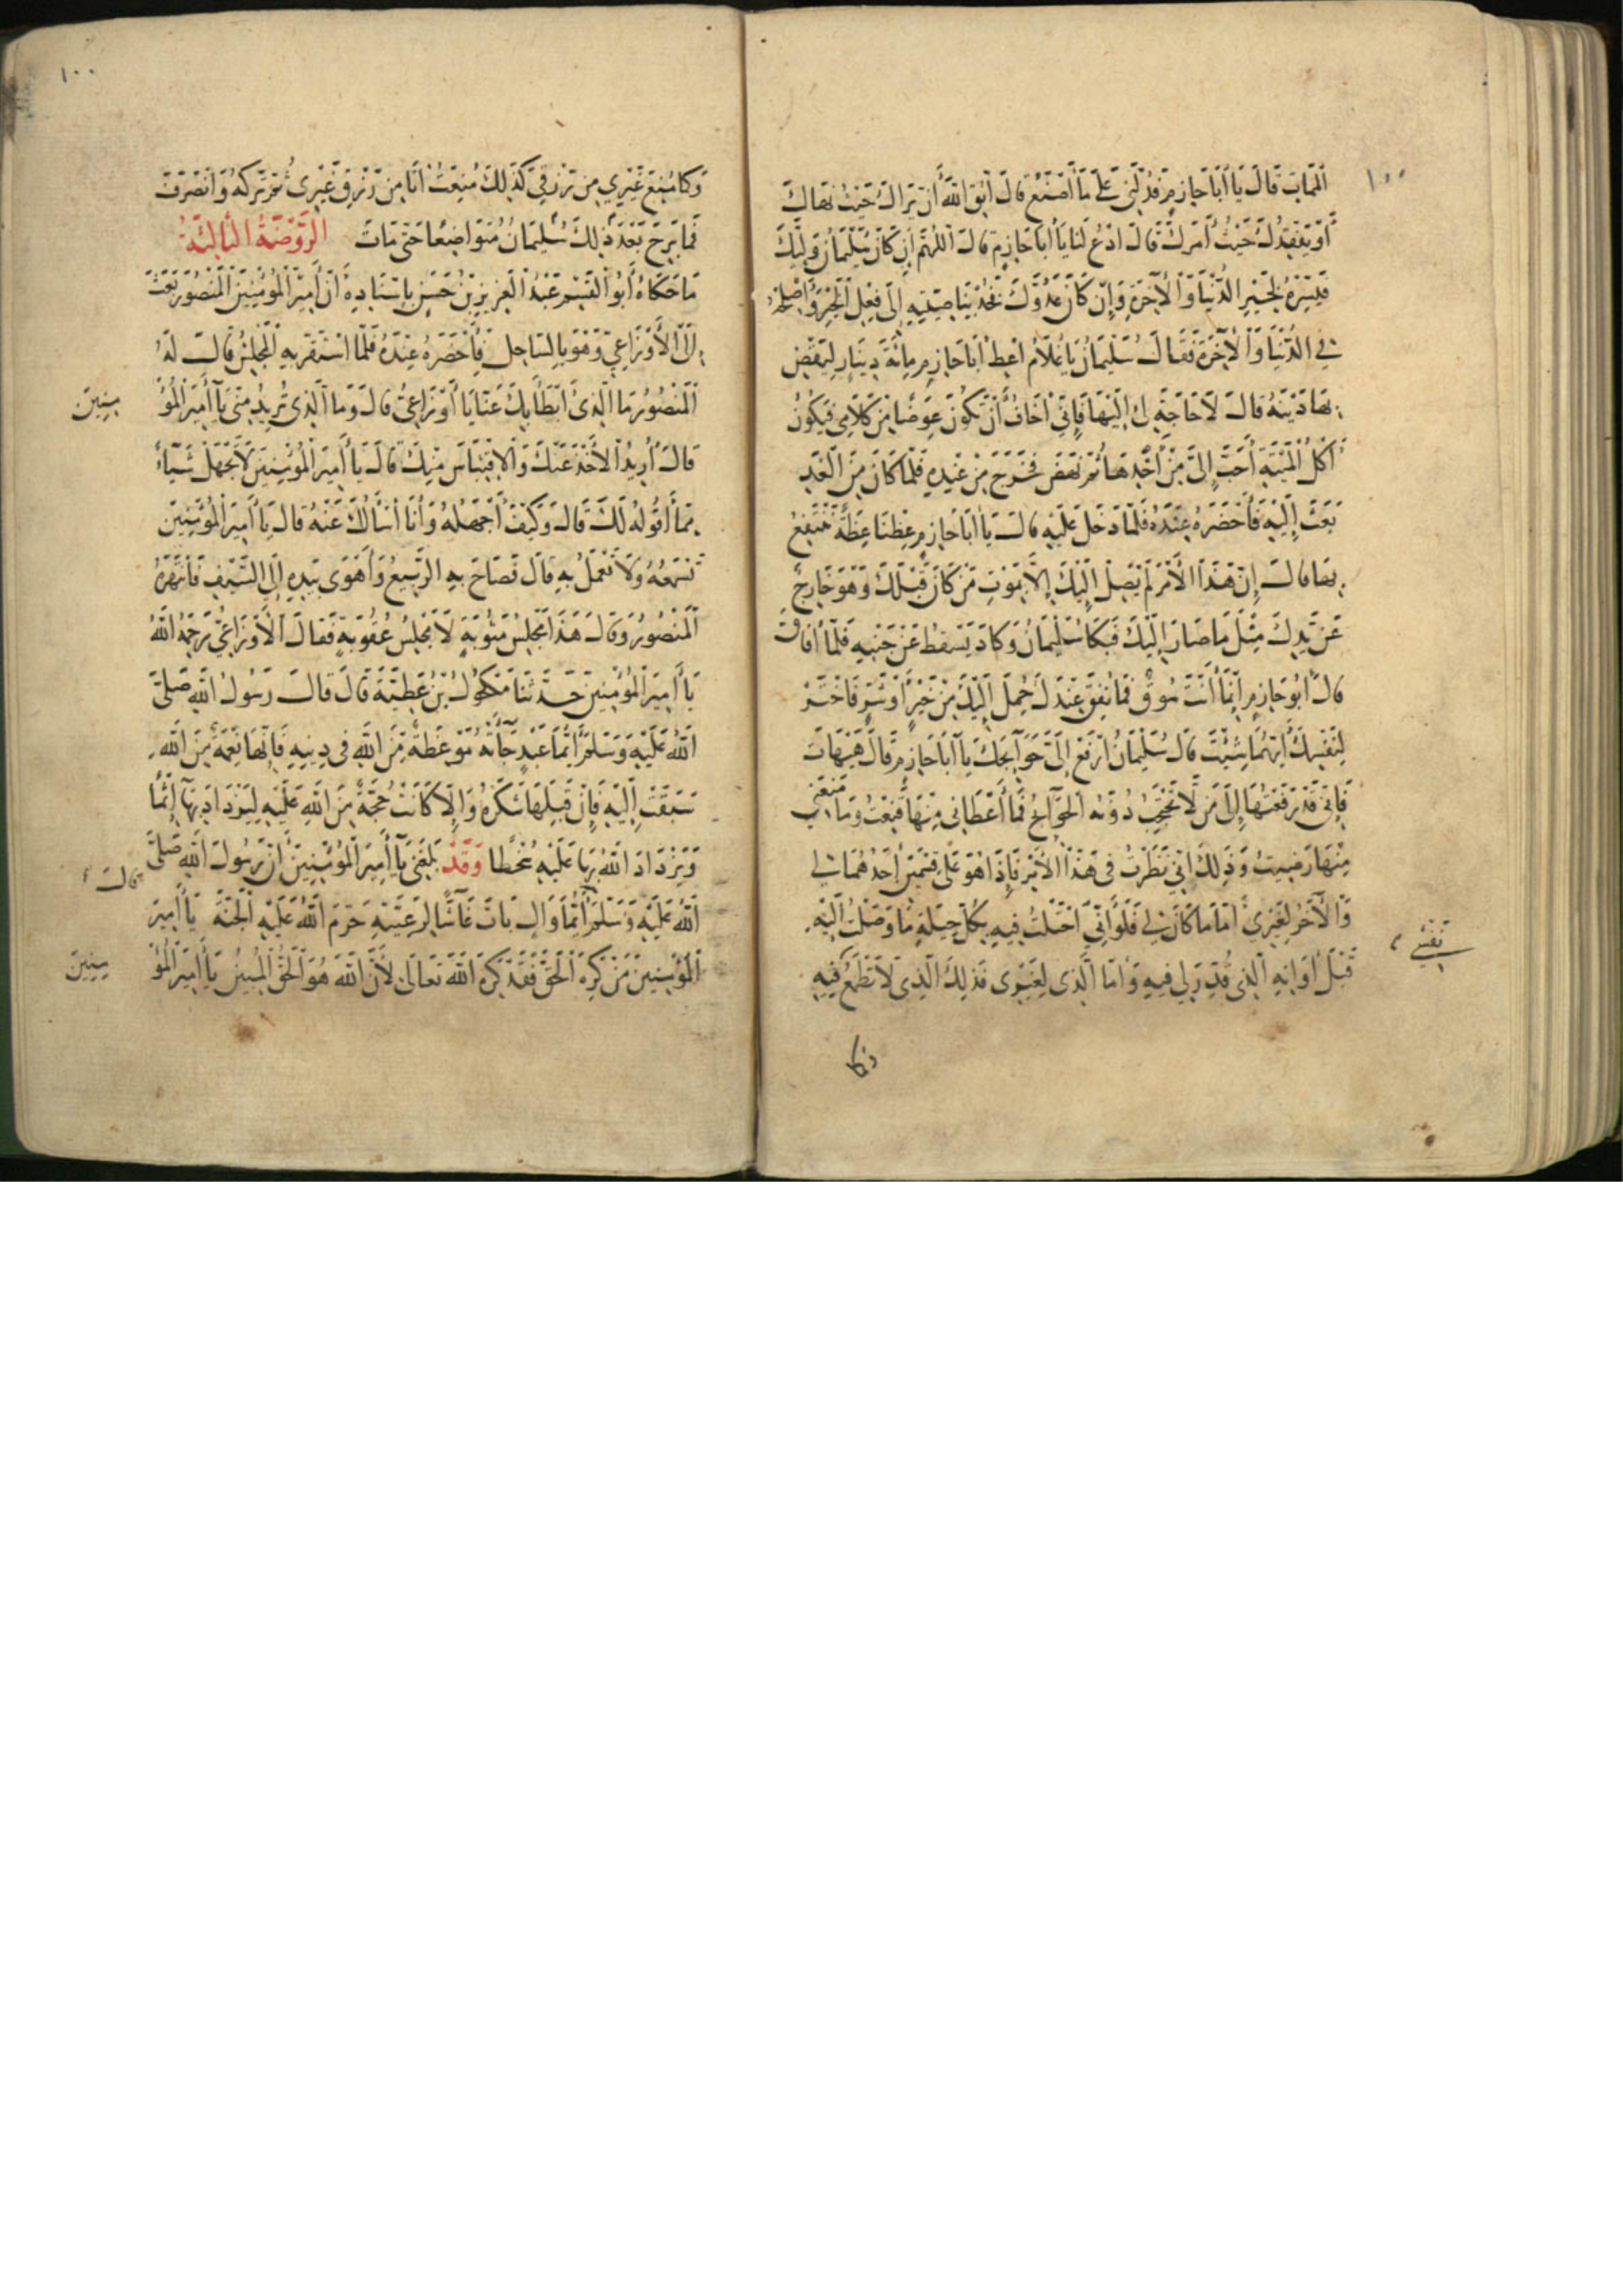 ١٠٠
المات قال يا أبا حازم فدلني على ما أصنع قال اتق الله أن يراك حيث نهاك
أو يفقدك حيث أمرك قال ادع لنا يا أبا حازم قال اللهم إن كان سليمان وليك
فيسره لخير الدنيا والآخرة وإن كان عدوك فخذ بناصيته إلى فعل الخير وأصلحه
في الدنيا والآخرة فقال سليمان يا غلام اعط أبا حازم مائة دينار ليقض
بها دينه قال لا حاجة لي إليها فإني أخاف أن تكون عوضا من كلامي فيكون
أكل الميتة أحب إلى من أخذها ثم نهض فخرج من عنده فلما كان من الغد
بعث إليه فأحضره عنده فلما دخل عليه قال يا أبا حازم عظنا عظة ننتفع
بها قال إن هذا الأمر لم يصل إليك إلا بموت من كان قبلك وهو خارج
عن يدك مثل ما صار إليك فبكا سليمان وكاد يسقط عن جنبه فلما أفاق
قال أبو حازم إنما أنت سوق فما نفق عندك حمل إليك من خير أو شر فاختر
لنفسك أيهما شئت قال سليمان ارفع إلى حوائجك يا أبا حازم قال هيهات
فإني قد رفعتها إلى من لا تحتجب دونه الحوائج فما أعطاني منها قنعت وما منعني
منها رضيت وذلك اني نظرت في هذا الأمر فإذا هو على قسمين أحدهما لي
والآخر لغيري أما ما كان لي فلو أني احتلت فيه بكل حيلة ما وصلت إليه
قبل أوانه الذي قدر لي فيه وأما الذي لغيري فذلك الذي لا تطمع نفسي فيه
وكما
١٠٠
وكما منع غيري من رزقي كذلك منعت أنا من رزق غيري ثم تركه وانصرف
فما برح بعد ذلك سليمان متواضعا حتى مات الروضة الثالثة
ما حكاه أبو القسم عبد العزيز بن حسن بإسناده أن أمير المؤمنين المنصور بعث
إلى الأوزاعي وهو بالساحل فأحضره عنده فلما استقر به المجلس قال له
المنصور ما الذي أبطأ بك عنا يا أوزاعي قال وما الذي تريد مني يا أمير المؤمنين
قال أريد الأخذ عنك والاقتباس منك قال يا أمير المؤمنين لا تجهل شيأ
مما أقوله لك قال وكيف أجهله وأنا أسألك عنه قال يا أمير المؤمنين
تسمعه ولا تعمل به قال فصاح به الربيع وأهوى بيده إلى السيف فانتهره
المنصور وقال هذا مجلس مثوبة لا مجلس عقوبة فقال الأوزاعي رحمه الله
يا أمير المؤمنين حدثنا مكحول بن عطية قال قال رسول الله صلى
الله عليه وسلم أيما عبد جأته موعظة من الله في دينه فإنها نعمة من الله
سبقت إليه فإن قبلها شكره وإلا كانت حجة من الله عليه ليزداد بها إثما
ويزداد الله بها عليه سخطا وقد بلغني يا أمير المؤمنين أن رسول الله صلى
الله عليه وسلم قال أيما وال بات غاشا لرعيته حرم الله عليه الجنة يا أمير
المؤمنين من كره الحق فقد كره الله تعالى لأن الله هو الحق المبين يا أمير المؤمنين